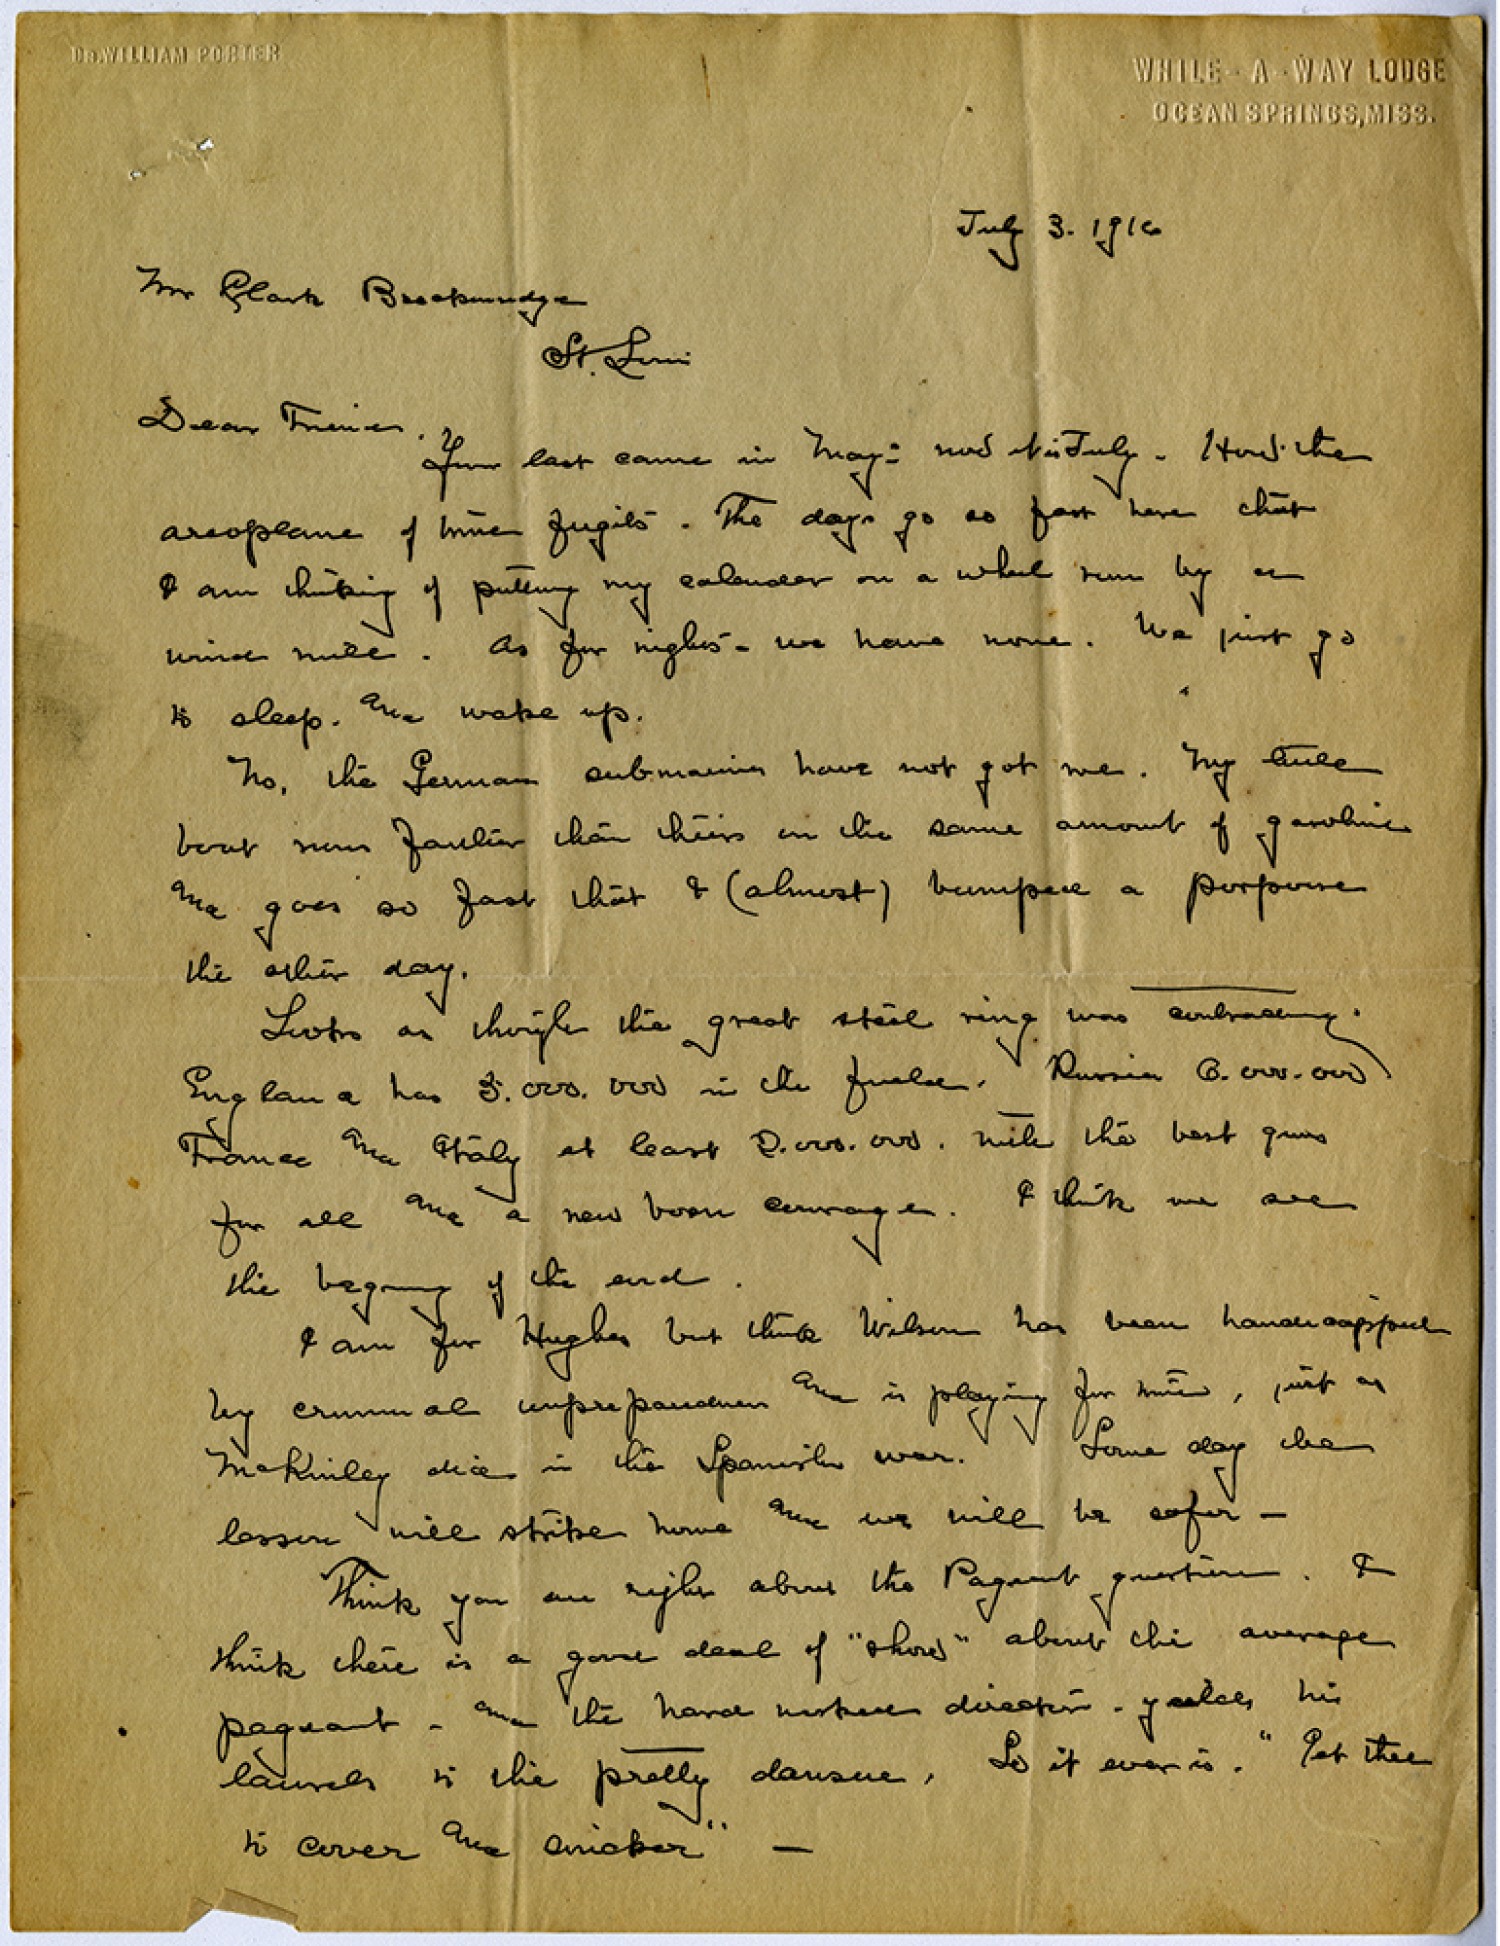 Dr. WILLIAM PORTER
WHILE-A-WAY LODGE
OCEAN SPRINGS, MISS.
July 3. 1916
Mr Clark Breckenridge
St. Louis
Dear Friend.
Your last came in May - now it is July. How the
aeroplane of time fugits. The days go so fast here that
I am thinking of putting my calendar on a wheel run by a
wind mill. As for nights - we have none. We just go
to sleep. and wake up.
No, the German submarines have not got me. My little
boat runs farther than theirs on the same amount of gasoline
and goes so fast that I (almost) bumped a porpoise
the other day.
Looks as though the great steel ring was contracting.
England has 5.000.000 in the field. Russia 6.000.000
France and Italy at least 2.000.000. with the best guns
for all and a new born courage. I think we see
the begining of the end.
I am for Hughes but think Wilson has been handicapped
by criminal unpreparedness and is playing for time, just as
McKinley did in the Spanish war. Some day the
lesson will strike home and we will be safer -
Think you are right about the Pageant question. I
think there is a good deal of "show" about the average
pageant - and the hard worked director - yields his
laurels to the pretty danseuse. So it ever is. " Get thee
to cover and snicker" -